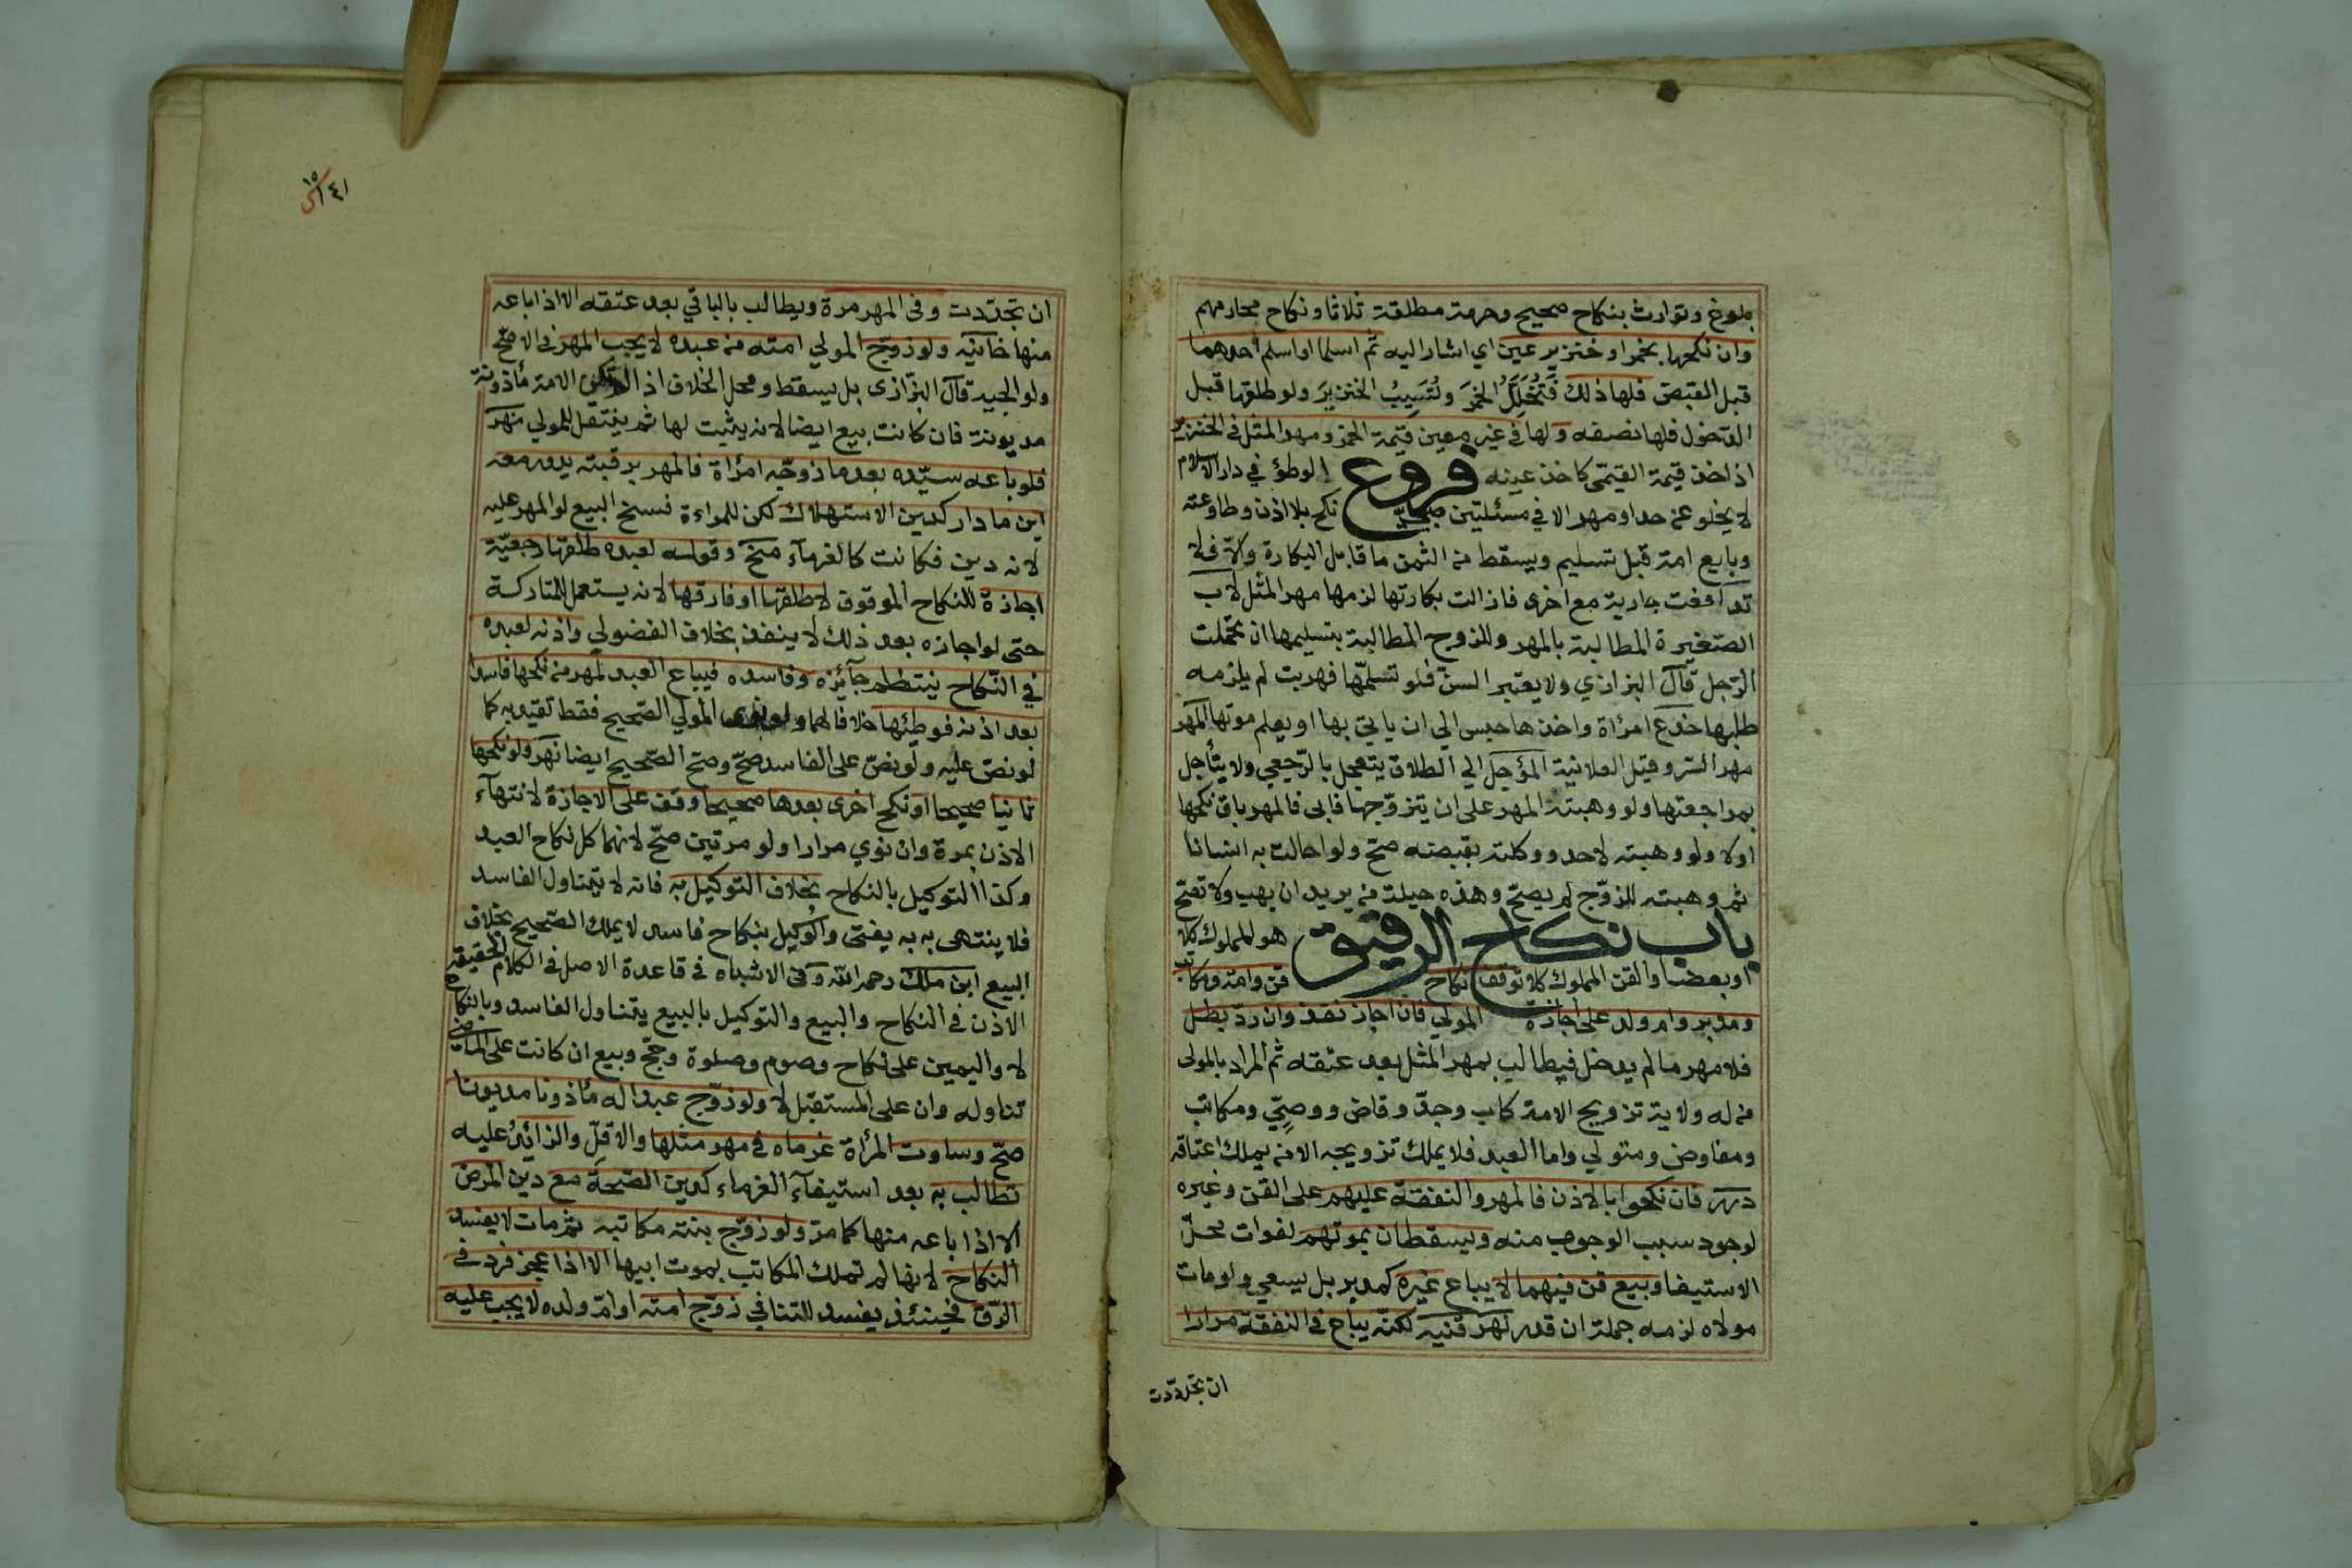 بلوغ وتوارث بنكاح صحيح وحرمة مطلقة ثلاثا ونكاح محارمهم
وان نكحها بخمر او خنزير عين اي اشار اليه ثم اسلما او اسلم احدهما
قبل القبض فلها ذلك فتُخَلِّلُ الخمرَ وتُسَيِّبُ الخنزيرَ ولو طلقها قبل
الدخول فلها نصفه ولها في غير معين قيمة الخمر ومهر المثل في الخنزير
اذ اخذ قيمة القيمي كاخذ عينه فروع الوطؤ في دار الاسلام
لا يخلو عن حد او مهر الا في مسئلتين صبيّ نكح بلا اذن وطاوعته
وبايع امة قبل تسليم ويسقط من الثمن ما قابل البكارة والّا فلا
تدافعت جارية مع اخرى فازالت بكارتها لزمها مهر المثل لاب
الصّغيرة المطالبة بالمهر وللزوج المطالبة بتسليمها ان تحملت
الرّجل قال البزازي ولا يعتبر السن فلو تسلّمها فهربت لم يلزمه
طلبها خدع امرأة واخذها حبس الي ان ياتي بها او يعلم موتها المهر
مهر السّر وقيل العلانية المؤجل الي الطلاق يتعجل بالرّجعي ولا يتأجل
بمراجعتها ولو وهبته المهر على ان يتزوّجها فابى فالمهر باق نكحها
اولا ولو وهبته لاحد ووكلته بقبضه صحّ ولو احالت به انسانا
ثم وهبته للزوّج لم يصحّ وهذه حيلة من يريد ان يهب ولا تصّح
باب نكاح الرقيق هو المملوك كلا
او بعضا والقن المملوك كلا توقف نكاح قن وامة ومكاتب
ومدبر وام ولد على اجازة المولي فان اجاز نفذ وان ردّ بطل
فلا مهر ما لم يدخل فيطالب بمهر المثل بعد عتقه ثم المراد بالمولى
من له ولاية تزويج الامة كاب وجدّ وقاض ووصيّ ومكاتب
ومفاوض ومتولي واما العبد فلا يملك تزويجه الا من يملك اعتاقه
درر فان نكحوا بالاذن فالمهر والنفقة عليهم على القن وغيره
لوجود سبب الوجوب منه ويسقطان بموتهم لفوات محلّ
الاستيفا وبيع قن فيهما لا يباع غيره كمدبر بل يسعي ولو مات
مولاه لزمه جملة ان قدر نهر قنيه لكنّه يباع في النفقة مرارا
ان تجدّدت
١٤١
ان تجدّدت وفى المهر مرة ويطالب بالباقي بعد عتقه الا اذا باعه
منها خانيه ولو زوّج المولي امته من عبده لا يجب المهر في الاصحّ
ولوالجية قال البزازى بل يسقط ومحل الخلاف اذا لم تكن الامة مأذونة
مديونة فان كانت بيع ايضا لانه يثبت لها ثم ينتقل للمولي نهر
فلو باعه سيّده بعد ما زوّجه امرأة فالمهر برقبته يدور معه
اين ما دار كدين الاستهلاك لكن للمراءة فسخ البيع لو المهر عليه
لانه دين فكانت كالغرمآء منح وقوله لعبده طلقها رجعيّة
اجازة للنكاح الموقوف لا طلقها او فارقها لانه يستعمل للمتاركة
حتى لو اجازه بعد ذلك لا ينفذ بخلاف الفضولي واذنه لعبده
في النّكاح ينتظم جآئزه وفاسده فيباع العبد لمهر من نكحها فاسدا
بعد اذنه فوطئها خلافا لهما ولو نوى المولي الصّحيح فقط تقيد به كما
لو نصّ عليه ولو نصّ على الفاسد صحّ وصحّ الصّحيح ايضا نهر ولو نكحها
ثانيا صحيحا او نكح اخرى بعدها صحيحا وقف على الاجازة لانتهآء
الاذن بمرة وان نوي مرارا ولو مرتين صحّ لانهما كل نكاح العبد
وكذا التوكيل بالنكاح بخلاف التوكيل به فانه لا يتناول الفاسد
فلا ينتهى به به يفتى والوكيل بنكاح فاسد لا يملك الصّحيح بخلاف
البيع ابن ملك رحمه الله وفى الاشباه في قاعدة الاصل في الكلام الحقيقة
الاذن في النكاح والبيع والتوكيل بالبيع يتناول الفاسد وبالنكاح
لا واليمين على نكاح وصوم وصلوة وحجّ وبيع ان كانت على الماضي
تناوله وان على المستقبل لا ولو زوّج عبدا له مأذونا مديونا
صحّ وساوت المرأة غرماه في مهر مثلها والاقلّ والزائدُ عليه
تطالب به بعد استيفآء الغرماء كدين الصّحة مع دين المرض
الا اذا باعه منها كما مرّ ولو زوّج بنته مكاتبه ثم مات لا يفسد
النّكاح لانها لم تملك المكاتب بموت ابيها الا اذا عجز فردّ في
الرّق فحينئذ يفسد للتنافي زوّج امته او امّ ولده لا يجب عليه